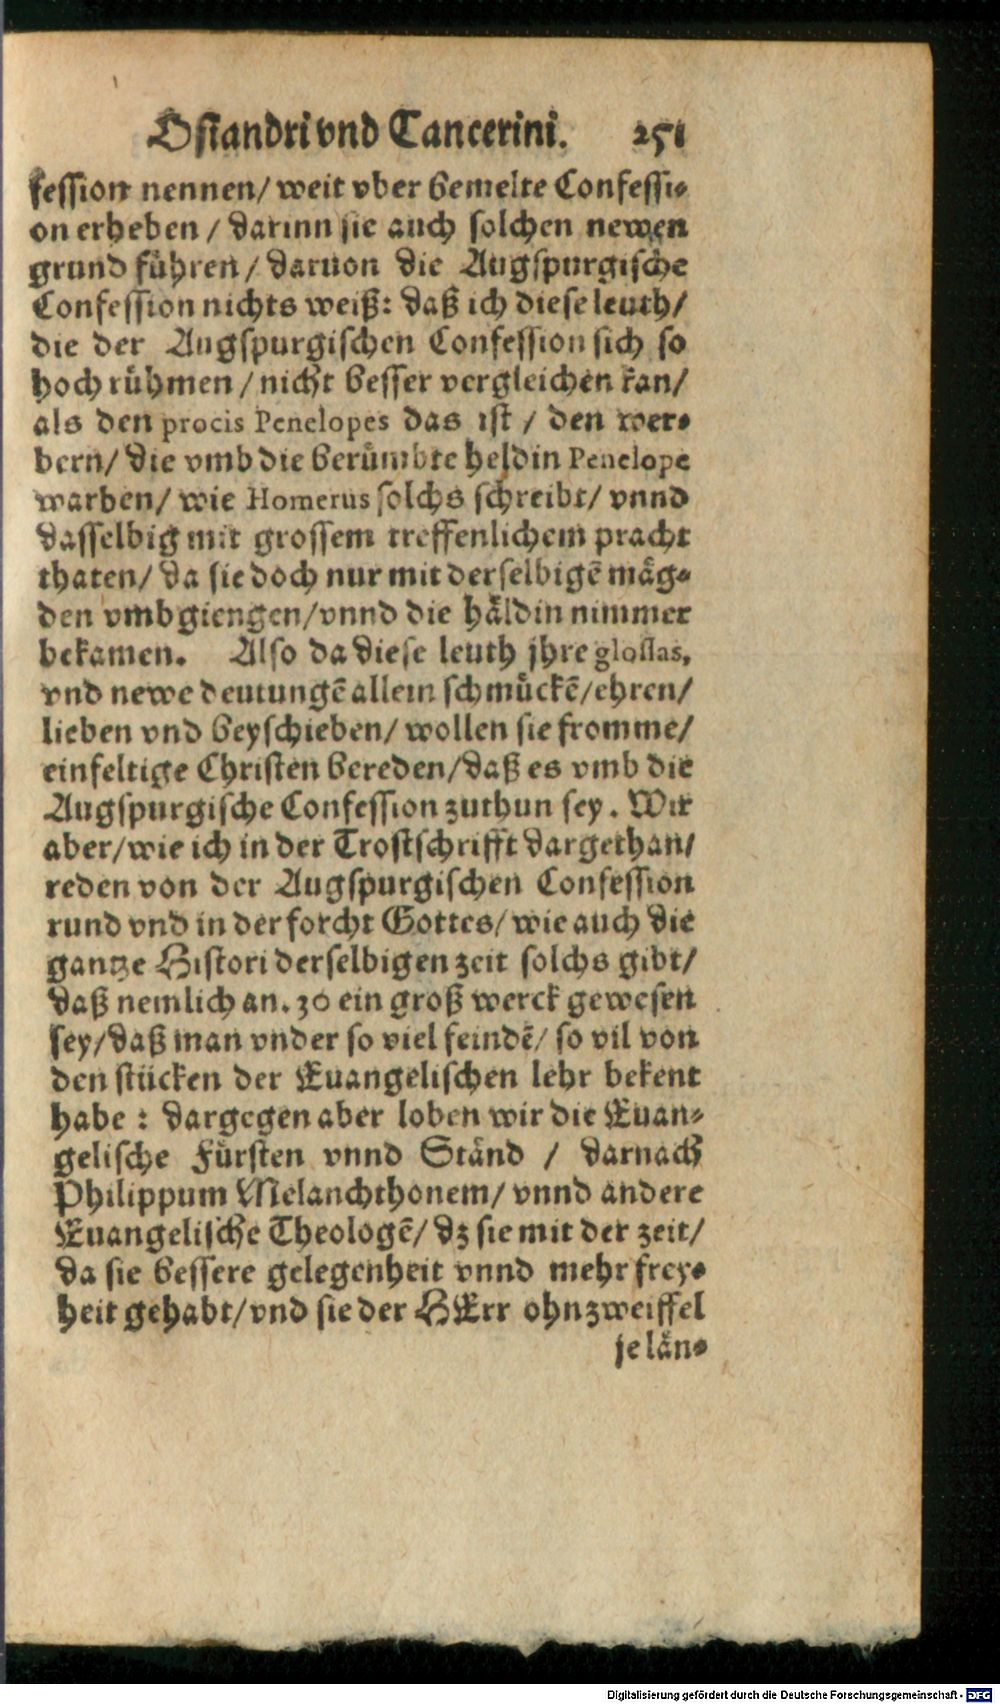 Osiandri vnd Cancerini. 251
fession nennen/ weit vber bemelte Confessi-
on erheben / darinn sie auch solchen newen
grund fuͤhren/ daruon die Augspurgische
Confession nichts weiß: daß ich diese leuth/
die der Augspurgischen Confession sich so
hoch ruͤhmen / nicht besser vergleichen kan/
als den procis Penelopes das ist / den wer-
bern/ die vmb die beruͤmbte heldin Penelope
warben/ wie Homerus solchs schreibt/ vnnd
dasselbig mit grossem treffenlichem pracht
thaten/ da sie doch nur mit derselbigẽ maͤg-
den vmbgiengen/ vnnd die haͤldin nimmer
bekamen. Also da diese leuth jhre glossas,
vnd newe deutungẽ allein schmuͤckẽ/ ehren/
lieben vnd beyschieben/ wollen sie fromme/
einfeltige Christen bereden/ daß es vmb die
Augspurgische Confession zuthun sey. Wir
aber/ wie ich in der Trostschrifft dargethan/
reden von der Augspurgischen Confession
rund vnd in der forcht Gottes/ wie auch die
gantze Histori derselbigen zeit solchs gibt/
daß nemlich an. 30 ein groß werck gewesen
sey/ daß man vnder so viel feindẽ/ so vil von
den stücken der Euangelischen lehr bekent
habe : dargegen aber loben wir die Euan-
gelische Fuͤrsten vnnd Staͤnd / darnach
Philippum Melanchthonem/ vnnd andere
Euangelische Theologẽ/ dz sie mit der zeit/
da sie bessere gelegenheit vnnd mehr frey-
heit gehabt/ vnd sie der HErr ohnzweiffel
je laͤn-
Digitalisierung gefördert durch die Deutsche Forschungsgemeinschaft - DFG